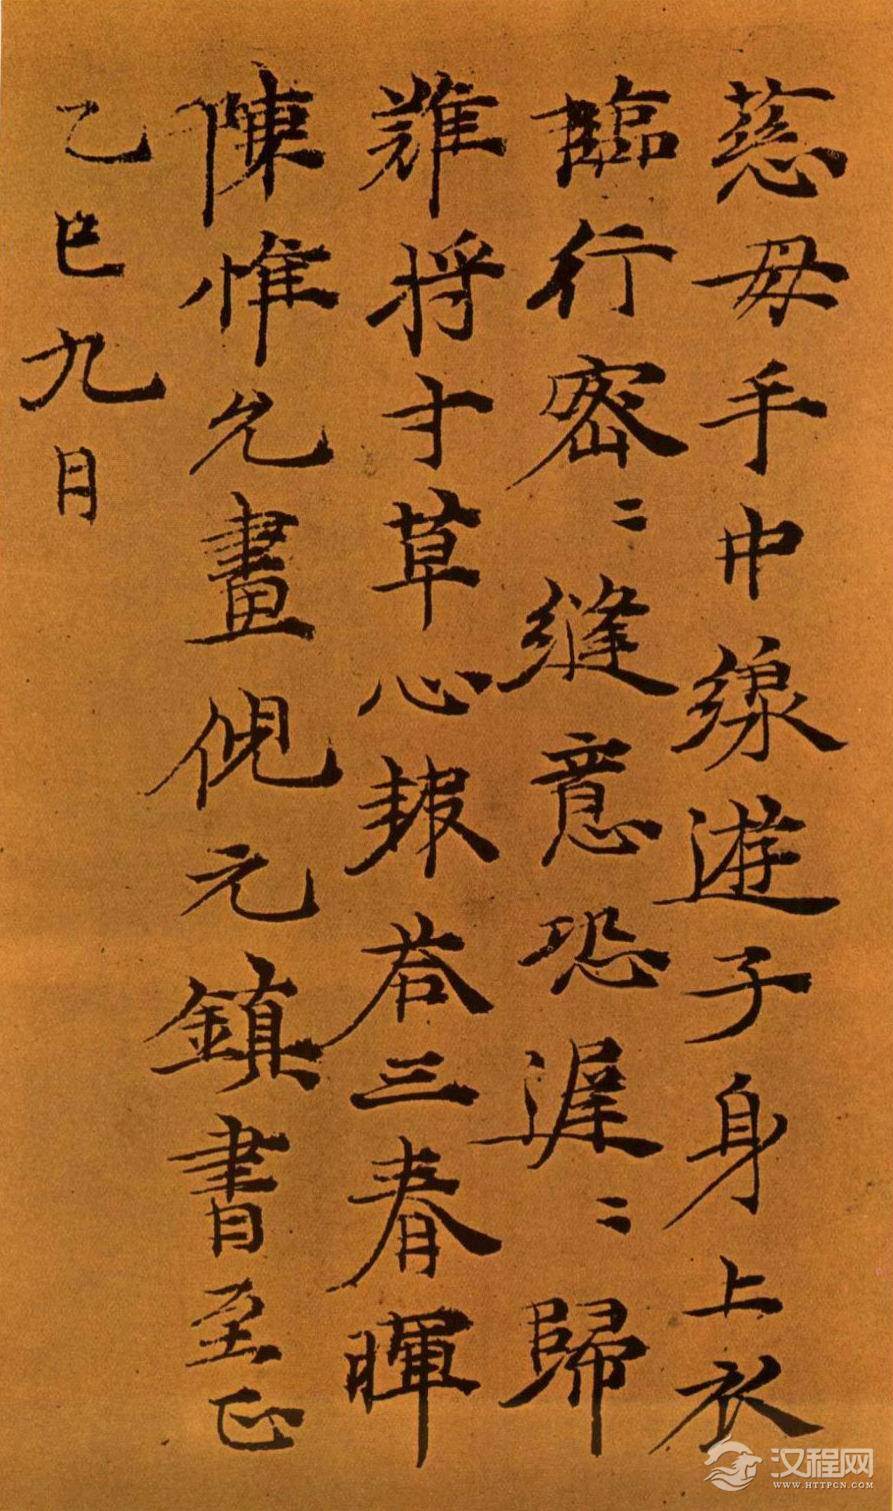 慈母手中線遊子身上衣
臨行密〻縫意恐遲〻歸
難將寸草心報荅三春暉
陳惟允畫倪元鎮書至正
乙巳九月
汉程网
WWW.HTTPCN.COM